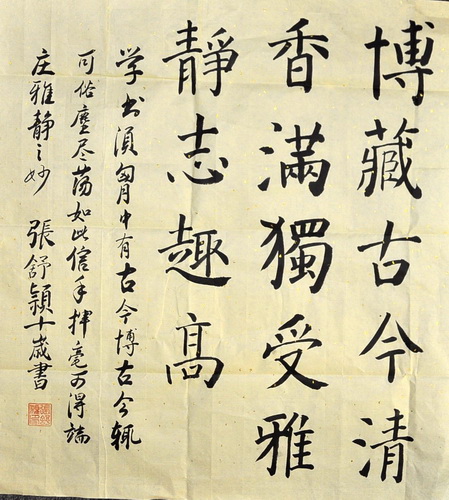 博藏古今清
香滿獨受雅
靜志趣髙
学书須胷中有古今博古今辄
可俗塵尽荡如此信手挥毫可得端
庄雅靜之妙 張舒穎十歲書